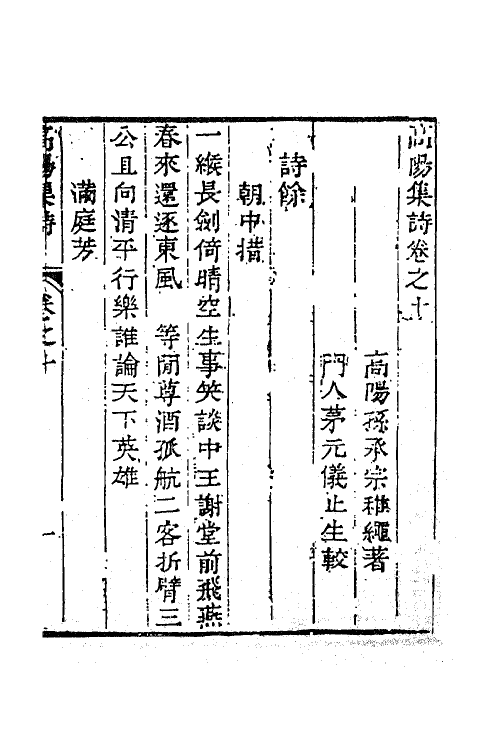 高陽集詩卷之十
高陽孫承宗稚繩著
門人茅元儀止生較
詩餘
朝中措
一緱長劍倚晴空生事笑談中王謝堂前飛燕
春來還逐東風　等閒尊酒孤航二客折臂三
公且向清平行樂誰論天下英雄
滿庭芳
高陽集詩　卷之十　一